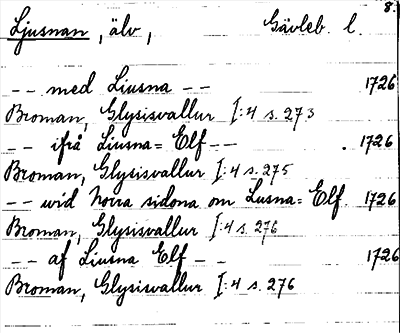 8.
Ljusnan, älv, Gävleb. l.
-- med Liusna -- 1726
Broman, Glysisvallur I:4 s. 273
-- ifrå Liusna= Elf -- 1726
Broman, Glysisvallur I:4 s. 275
-- wid Norra sidona om Lusna= Elf. 1726
Broman, Glysisvallur I:4 s. 276
-- af Liusna Elf -- 1726
Broman, Glysisvallur I:4 s. 276